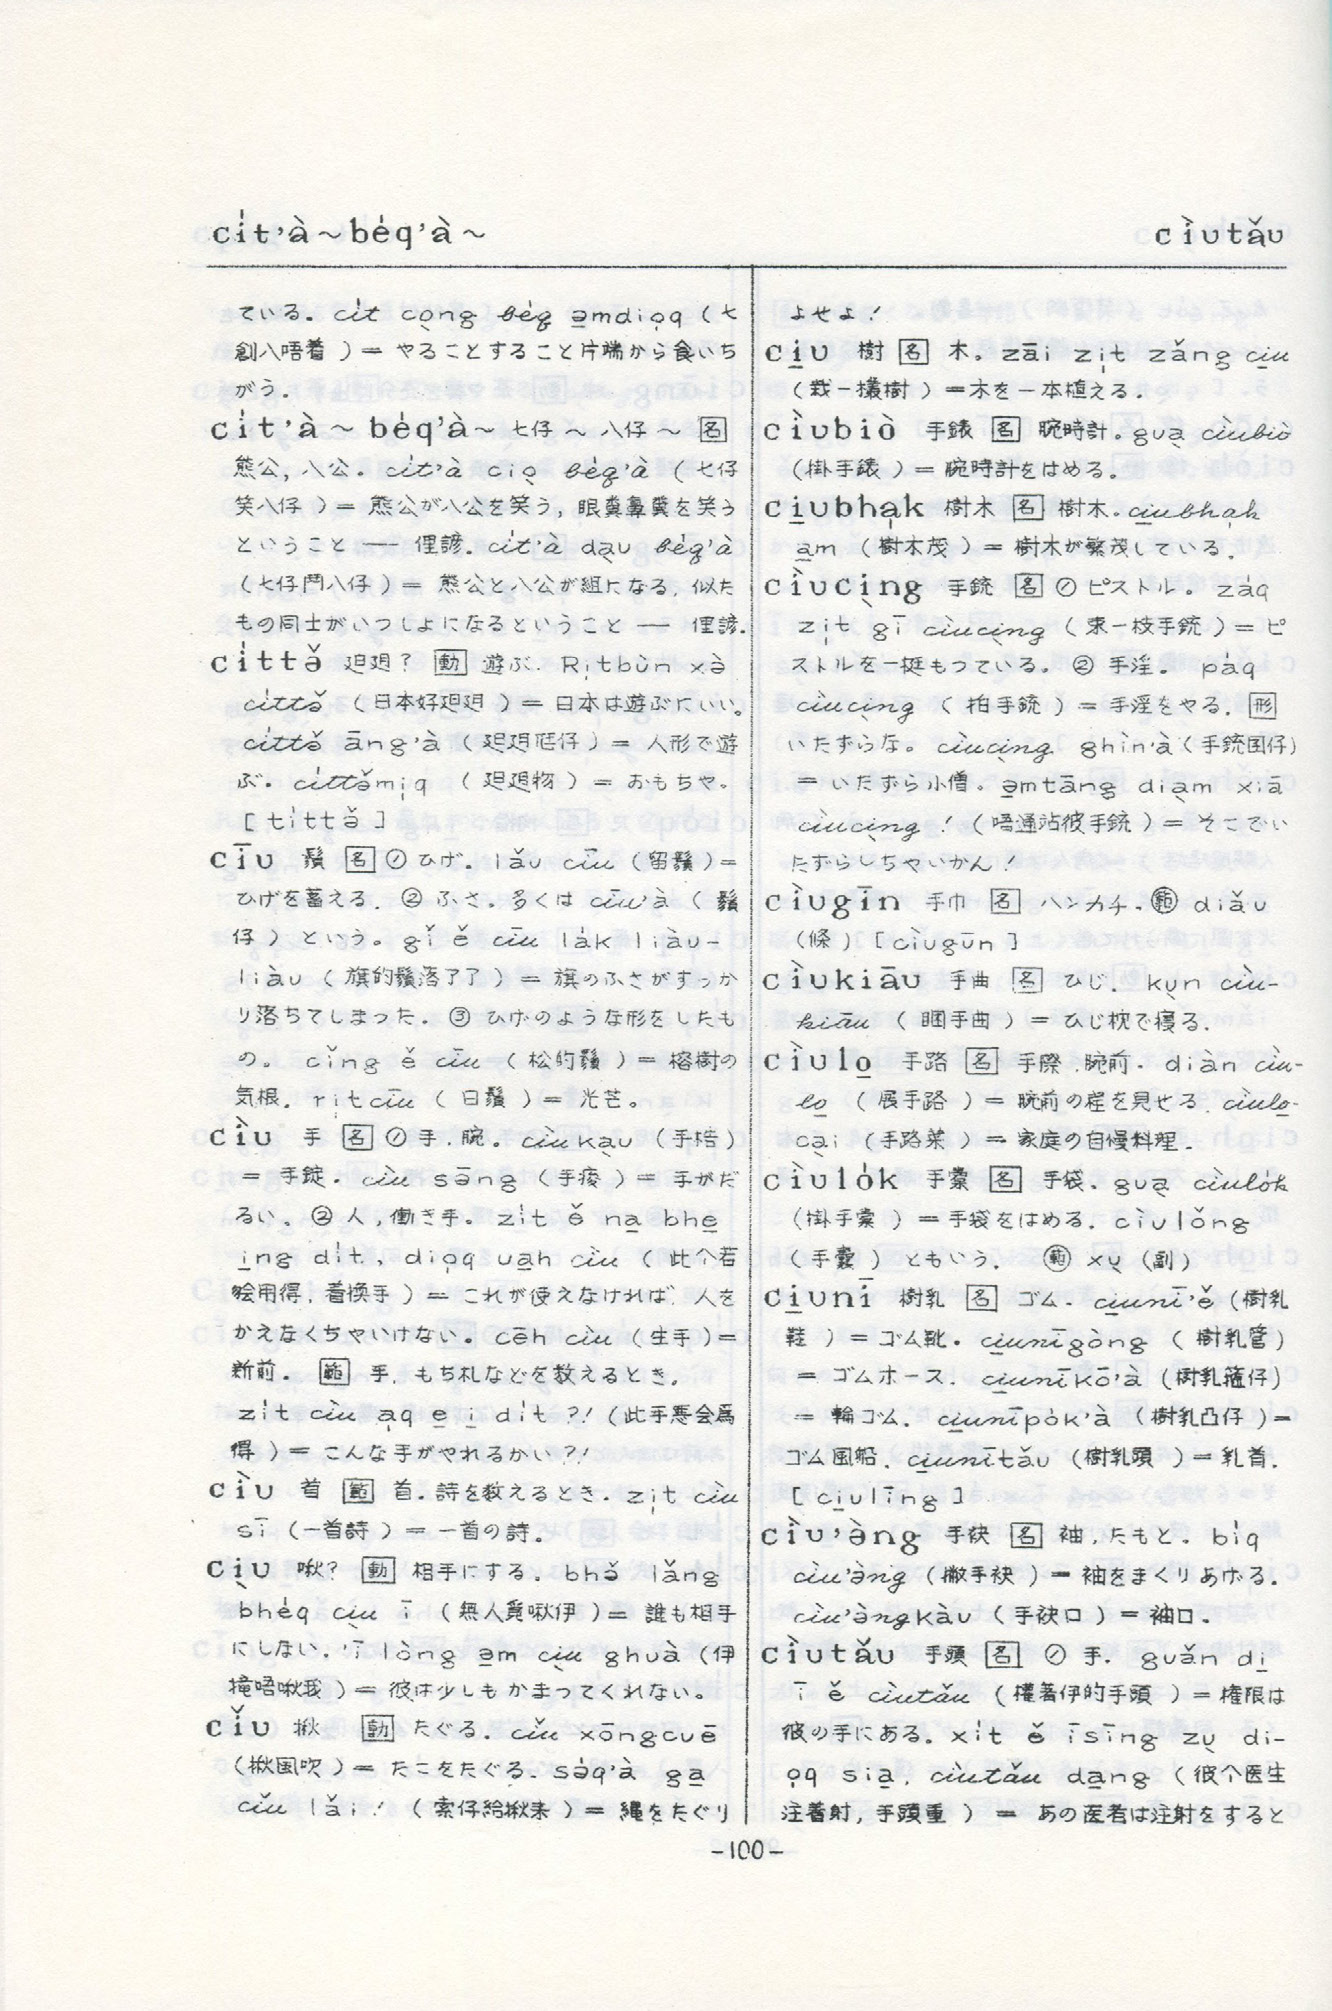 ci̍t'à～be̍q'à～
cìutǎu
ている。ci̍t co̩ng be̍q ə̱mdio̩q（七
創八唔着）＝やることすること片端から食いち
がう。
ci̍t'à～be̍q'à～ 七仔～八仔～ 名
熊公，八公。ci̍t'à ciə̩ be̍q'à（七仔
笑八仔）＝熊公が八公を笑う，眼糞鼻糞を笑う
ということ ── 俚諺．ci̍t'à da̩u be̍q'à
（七仔鬥八仔）＝熊公と八公が組になる．似た
もの同士がいっしょになるということ ── 俚諺．
ci̍ttə̌ 𨑨迌？ 動 遊ぶ．Ri̩tbùn xə̀
ci̍ttə̌（日本好𨑨迌）＝日本は遊ぶにいい。
ci̍ttə̌ āng'à（𨑨迌尫仔）＝人形で遊
ぶ．ci̍ttə̌mi̩q（𨑨迌物）＝おもちゃ。
[ ti̍ttə̌ ]
cīu 鬚 名 ① ひげ．lǎu cīu（留鬚）＝
ひげを蓄える．② ふさ。多くは cīu'à（鬚
仔）という。gǐ ě cīu la̍k liàu-
liàu（旗的鬚落了了）＝旗のふさがすっか
り落ちてしまった．③ ひげのような形をしたも
の。cǐng ě cīu（松的鬚）＝榕樹の
気根．ri̩tcīu（日鬚）＝光芒。
cìu 手 名 ① 手．腕．cìuka̩u（手梏）
＝手錠．cìu sə̄ng（手痠）＝手がだ
るい。② 人，働き手。zi̍t ě na̱ bhe̱
i̱ng di̍t, dio̩q ua̱h cìu（此个若
𣍐用得．着換手）＝これが使えなければ．人を
かえなくちゃいけない。cēh cìu（生手）＝
新前． 範 手．もち札などを数えるとき．
zi̍t cìu a̩q e̱ i̱ di̍t ?!（此手悪会爲
得）＝こんな手がやれるかい？！
cìu 首 範 首．詩を数えるとき．zi̩t cìu
sī（一首詩）＝一首の詩．
ci̩u 啾？ 動 相手にする．bhə̌ lǎng
bhe̍q ci̩u ī（無人覓啾伊）＝誰も相手
にしない．ī lòng ə̱m ci̩u ghuà（伊
攏唔啾我）＝彼は少しもかまってくれない。
cǐu 揪 動 たぐる．cǐu xōngcuē
（揪風吹）＝たこをたぐる．sə̍q'à ga̱
cǐu lǎi !（索仔給揪来）＝縄をたぐり
よせよ！
ci̱u 樹 名 木。zāi zi̩t zǎng ci̱u
（栽一欉樹）＝木を一本植える．
cìubiò 手錶 名 腕時計。gua̩ cìubiò
（掛手錶）＝腕時計をはめる．
ci̱ubha̩k 樹木 名 樹木．ci̱ubha̩k
a̱m（樹木茂）＝樹木が繁茂している．
cìuci̩ng 手銃 名 ① ピストル。za̍q
zi̩t gī cìuci̩ng（束一枝手銃）＝ピ
ストルを一挺もっている．② 手淫。pa̍q
cìuci̩ng（拍手銃）＝手淫をやる．形
いたずらな。cìuci̩ng ghìn'à（手銃囝仔）
＝いたずら小僧．ə̱mtāng dia̩m xiā
cìuci̩ng !（唔通站彼手銃）＝そこでい
たずらしちゃいかん！
cìugīn 手巾 名 ハンカチ．範 diǎu
（條）[cìugūn ]
cìukiāu 手曲 名 ひじ．ku̩n cìu-
kiāu（睏手曲）＝ひじ枕で寝る．
cìulo̱ 手路 名 手際．腕前．diàn cìu-
lo̱（展手路）＝腕前の程を見せる．cìulo̱-
ca̩i（手路菜）＝家庭の自慢料理．
cìulo̍k 手橐 名 手袋．gua̩ cìulo̍k
（掛手橐）＝手袋をはめる．cìulǒng
（手囊）ともいう． 範 xu̩（副）
ci̱unī 樹乳 名 ゴム．ci̱unī'ě（樹乳
鞋）＝ゴム靴．ci̱unīgòng（樹乳管）
＝ゴムホース．ci̱unīkō'à（樹乳箍仔）
＝輪ゴム．ci̱unīpo̍k'à（樹乳凸仔）＝
ゴム風船．ci̱unītǎu（樹乳頭）＝乳首．
[ ci̱ulīng ]
cìu'ə̀ng 手䘼 名 袖，たもと。bi̍q
cìu'ə̀ng（撇手䘼）＝袖をまくりあげる．
cìu'ə̀ngkàu（手䘼口）＝袖口．
cìutǎu 手頭 名 ① 手．guǎn di̱
ī ě cìutǎu（權著伊的手頭）＝権限は
彼の手にある．xi̍t ě īsīng zu̩ di-
o̩q sia̱, cìutǎu da̱ng（彼个医生
注着射，手頭重）＝あの医者は注射をすると
-100-